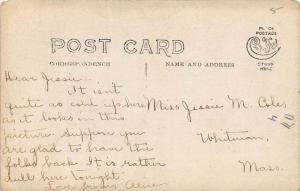 5
POST CARD
CORRESPONDENCE
NAME AND ADDRESS
PLACE
POSTAGE
STAMP
HERE
Dear Jessie:-
It isn't
quite as cold up here
as it looks in this
picture. Suppose you
are glad to have the
folks back. It is rather
dull here tonight.
Love from Alice
Miss Jessie M. Coles
Whitman,
Mass.